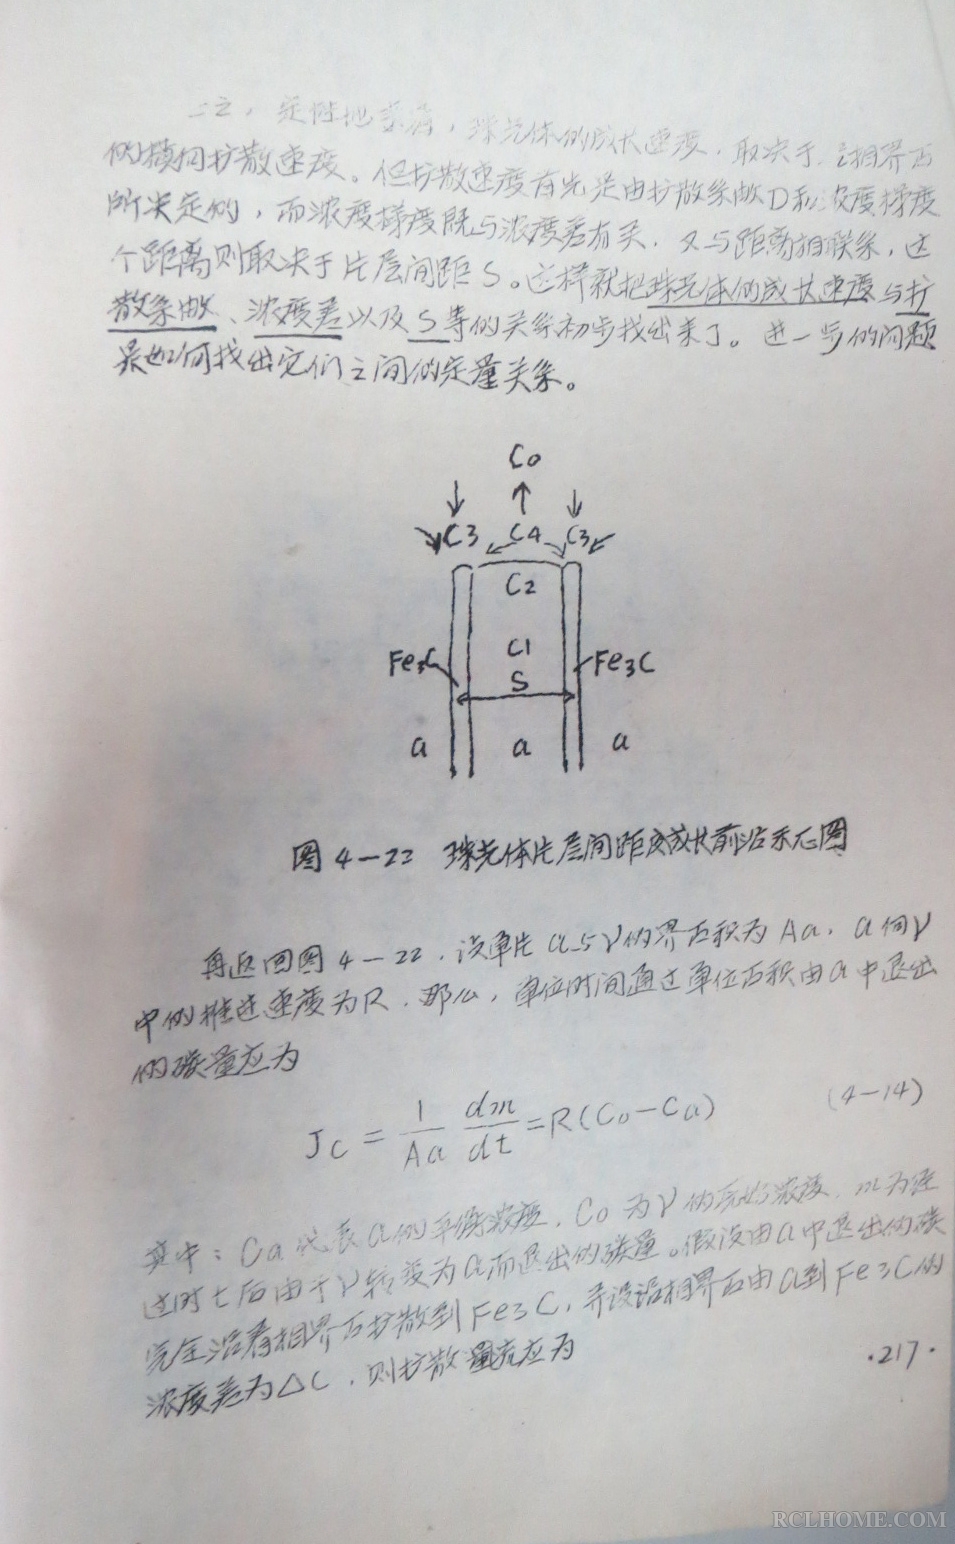 之，定性地来看，珠光体的成长速度，取决于沿相界面
的横向扩散速度。但扩散速度首先是由扩散系数D和浓度梯度
所决定的，而浓度梯度既与浓度差有关，又与距离相联系，这
个距离则取决于片层间距S。这样就把珠光体的成长速度与扩
散系数、浓度差以及S等的关系初步找出来了。进一步的问题
是如何找出它们之间的定量关系。
C0
C3 C4 C3
C2
C1
Fe3C Fe3C
S
a a a
图4—22 珠光体片层间距及成长前沿示意图
再返回图4—22，设单片a与γ的界面积为Aa，a向γ
中的推进速度为R，那么，单位时间通过单位面积由a中退出
的碳量应为
JC = 1/Aa dm/dt = R(C0-Ca) (4-14)
其中：Ca代表a的平衡浓度，C0为γ的原始浓度，m为经
过时t后由于γ转变为a而退出的碳量。假设由a中退出的碳
完全沿着相界面扩散到Fe3C，并设沿相界面由a到Fe3C的
浓度差为△C，则扩散量应为
·217·
RCLHOME.COM